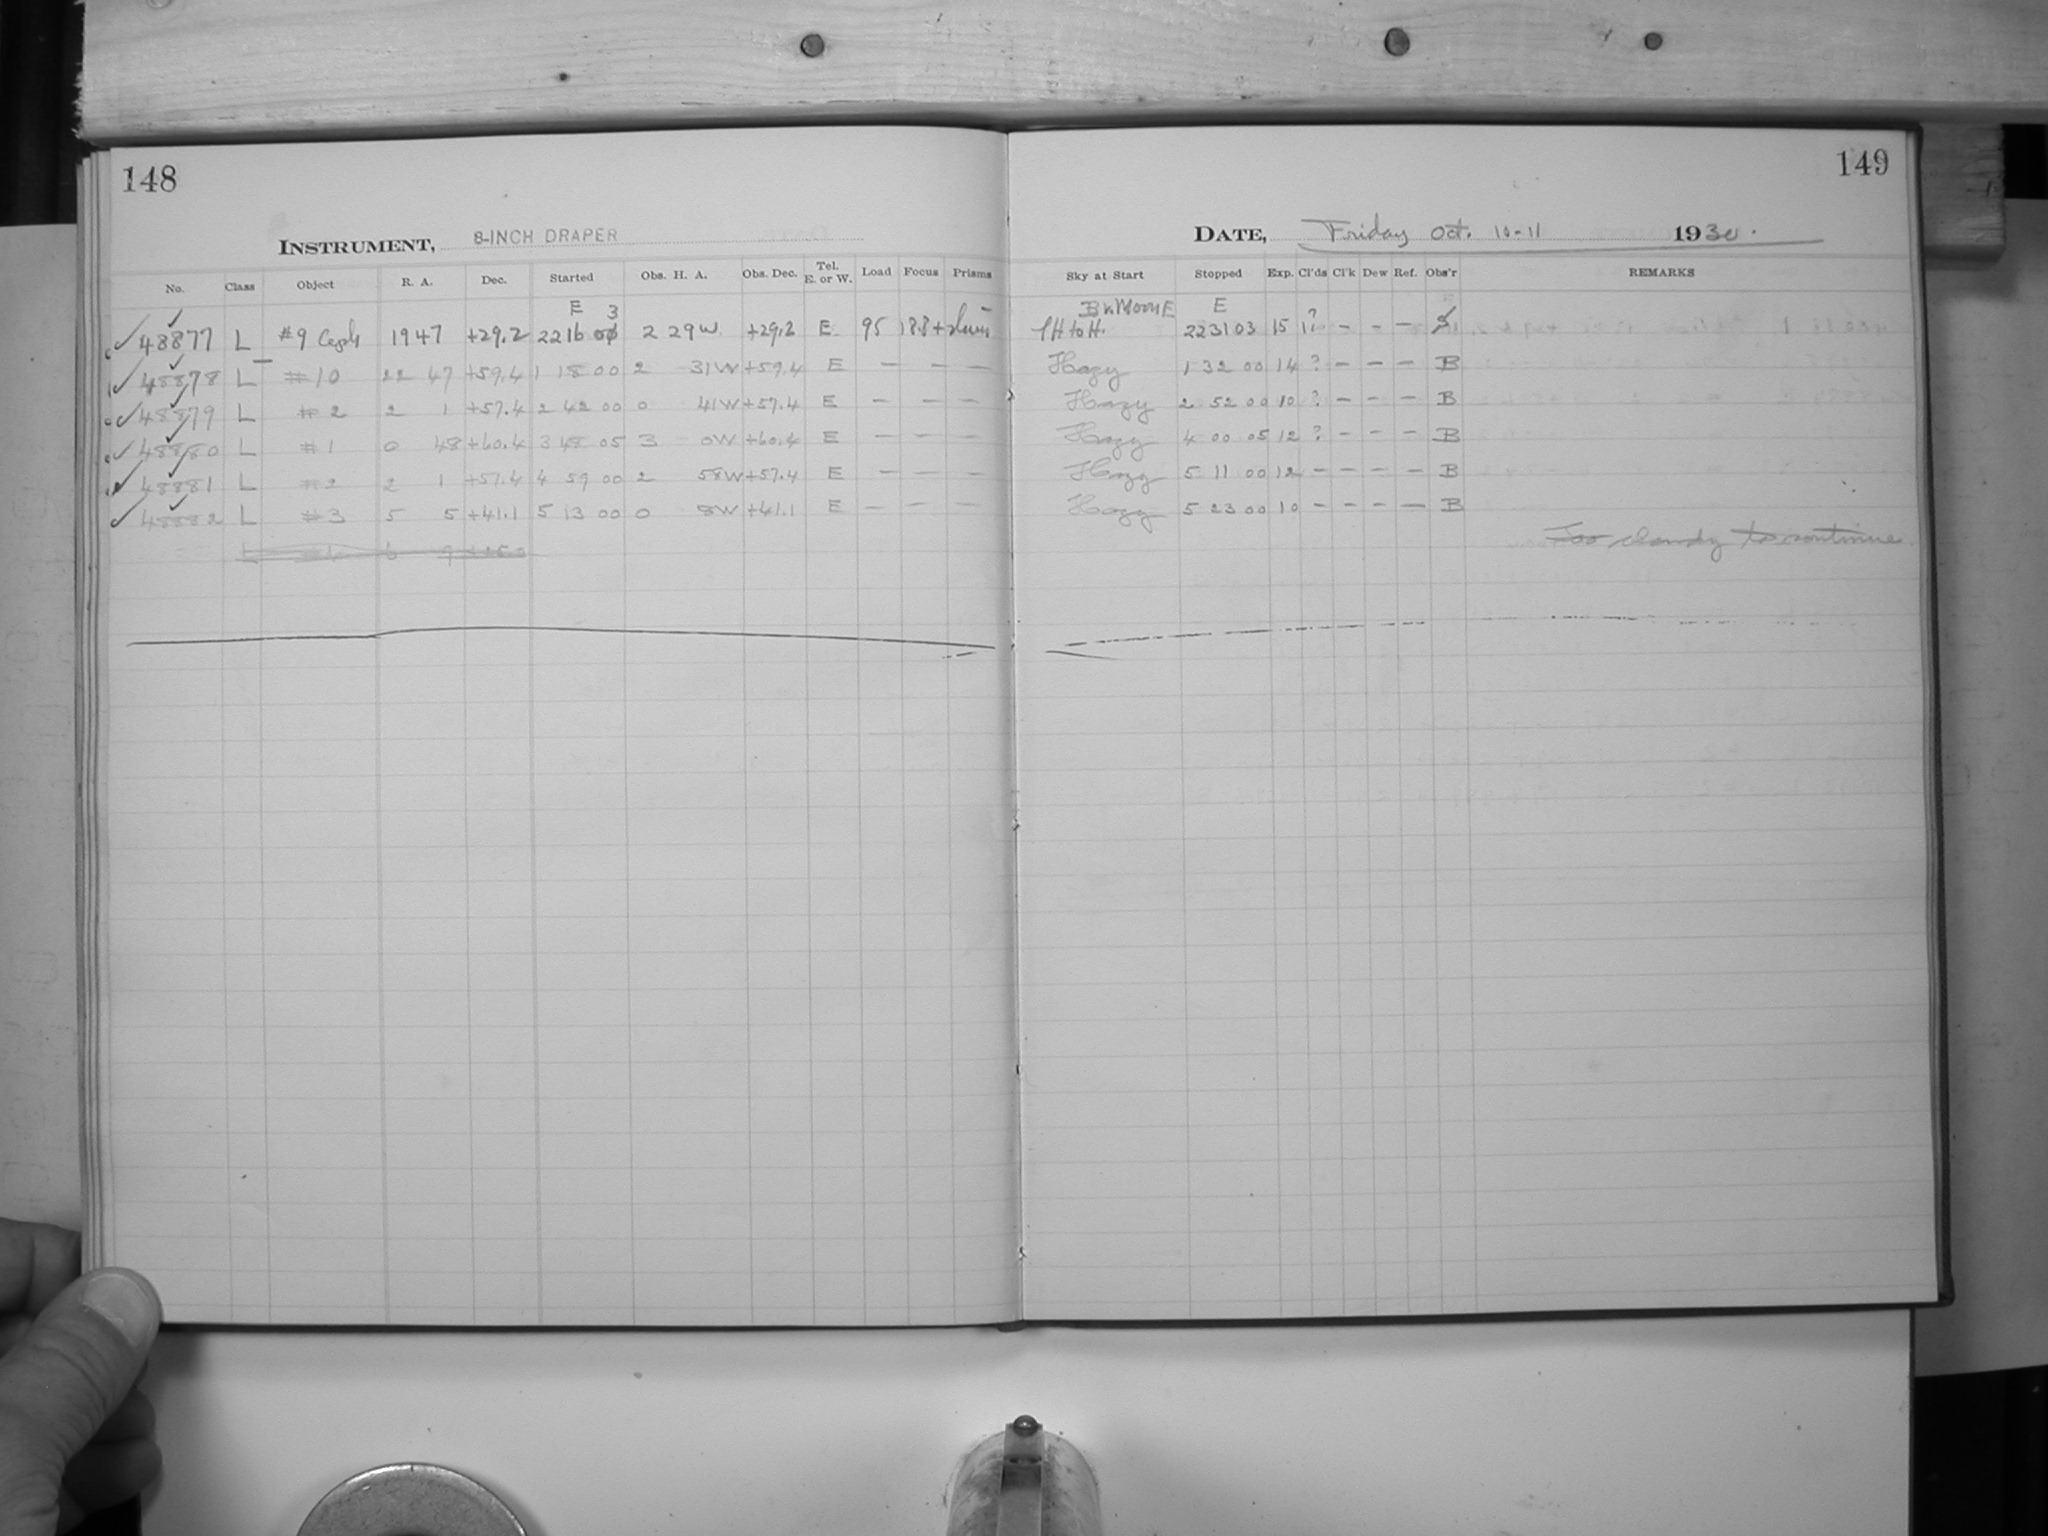 148
149
INSTRUMENT, 8-INCH DRAPER
DATE, Friday Oct. 10-11 1930.
No. Class Object R. A. Dec. Started Obs. H. A. Obs. Dec. Tel. E. or W. Load Focus Prisms Sky at Start Stopped Exp. Cl'ds Cl'k Dew Ref. Obs'r REMARKS
E 3 Br Moon E E
48877 L #9 Ceph 19 47 +29.2 22 16 00 2 29 W +29.2 E 95 18.8+ 1H to H. 22 31 03 15 ? - - -
48878 L #10 22 47 +59.4 1 18 00 2 31 W +59.4 E - - - Hazy 1 32 00 14 ? - - - B
48879 L #2 2 1 +57.4 2 42 00 0 41 W +57.4 E - - - Hazy 2 52 00 10 ? - - - B
48880 L #1 0 48 +60.4 3 48 05 3 0 W +60.4 E - - - Hazy 4 00 05 12 ? - - - B
48881 L #2 2 1 +57.4 4 59 00 2 58 W +57.4 E - - - Hazy 5 11 00 12 - - - - B
48882 L #3 5 5 +41.1 5 13 00 0 8 W +41.1 E - - - Hazy 5 23 00 10 - - - - B
Too cloudy to continue.